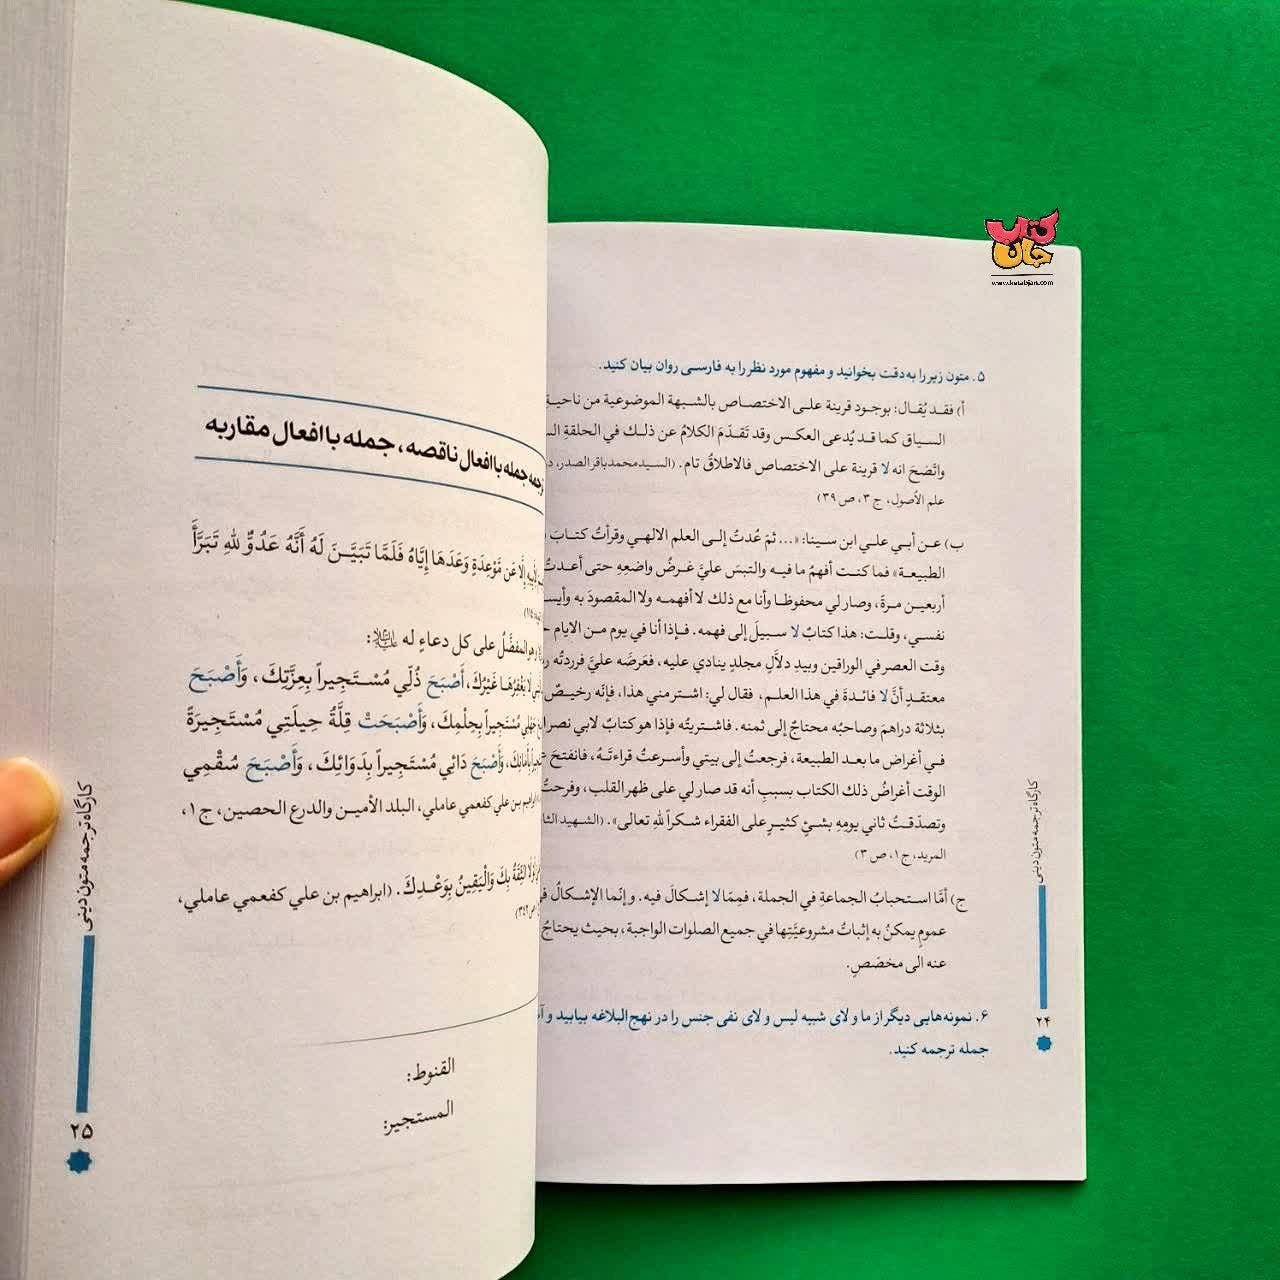 کتاب
جان
www.ketabjan.com
۵. متون زیر را به دقت بخوانید و مفهوم مورد نظر را به فارسی روان بیان کنید.
أ) فقد یُقال: بوجود قرینة علی الاختصاص بالشبهة الموضوعیة من ناحیة
السیاق کما قد یُدعی العکس وقد تَقدّمَ الکلامُ عن ذلک في الحلقةِ
واتّضحَ انه لا قرینة علی الاختصاص فالاطلاقُ تام. (السید محمد باقر الصدر،
علم الأصول، ج ۳، ص ۳۹)
ب) عن أبي علي ابن سینا: «... ثمَ عُدتُ إلی العلم الالهي وقرأتُ کتابَ
الطبیعة» فما کنت أفهمُ ما فیه والتبسَ عليَّ غرضُ واضعِهِ حتی أعدتُ
أربعین مرةً، وصار لي محفوظا وأنا مع ذلك لا أفهمه ولا المقصودَ به
نفسي، وقلت: هذا کتابٌ لا سبیلَ إلی فهمه. فإذا أنا في یوم من الایام
وقت العصر في الوراقین وبیدِ دلاّلٍ مجلدٍ ینادي علیه، فعَرَضَه عليَّ فرددتُه
معتقدٍ أنَّ لا فائدةَ في هذا العلم، فقال لي: اشتر مني هذا، فإنّه رخیصٌ
بثلاثة دراهمَ وصاحبُه محتاجٌ إلی ثمنه. فاشتریتُه فإذا هو کتابٌ لابي نصر
في أغراض ما بعد الطبیعة، فرجعتُ إلی بیتي وأسرعتُ قراءتَهُ، فانفتحَ
الوقت أغراضُ ذلك الکتاب بسببِ أنه قد صار لي علی ظهر القلب، وفرحتُ
وتصدّقتُ ثاني یومِهِ بشئٍ کثیرٍ علی الفقراء شکراً للهِ تعالی». (الشهید
المرید، ج ۱، ص ۳)
ج) أمّا استحبابُ الجماعةِ في الجملة، فمِمّا لا إشکالَ فیه. وإنّما الإشکالُ
عمومٍ یمکنُ به إثباتُ مشروعیَّتِها في جمیع الصلوات الواجبة، بحیث یحتاجُ
عنه الی مخصّصٍ.
۶. نمونه‌هایی دیگر از ما و لای شبیه لیس و لای نفی جنس را در نهج‌البلاغه بیابید و
جمله ترجمه کنید.
کارگاه ترجمه متون دینی
۲۴
ترجمه جمله با افعال ناقصه، جمله با افعال مقاربه
إِلَّا عَن مَوْعِدَةٍ وَعَدَهَا إِيَّاهُ فَلَمَّا تَبَيَّنَ لَهُ أَنَّهُ عَدُوٌّ لِلهِ تَبَرَّأَ
المفضَّلُ علی کل دعاءٍ له علیه‌السلام:
لَا يَغْفِرُهَا غَيْرُكَ، أَصْبَحَ ذُلِّي مُسْتَجِيراً بِعِزَّتِكَ، وَأَصْبَحَ
مُسْتَجِيراً بِحِلْمِكَ، وَأَصْبَحَتْ قِلَّةُ حِيلَتِي مُسْتَجِيرَةً
وَأَصْبَحَ دَائِي مُسْتَجِيراً بِدَوَائِكَ، وَأَصْبَحَ سُقْمِي
ابراهیم بن علي کفعمي عاملي، البلد الأمین والدرع الحصین، ج ۱،
لَا الثِّقَةُ بِكَ وَالْيَقِينُ بِوَعْدِكَ. (ابراهیم بن علي کفعمي عاملي،
القنوط:
المستجیر:
کارگاه ترجمه متون دینی
۲۵